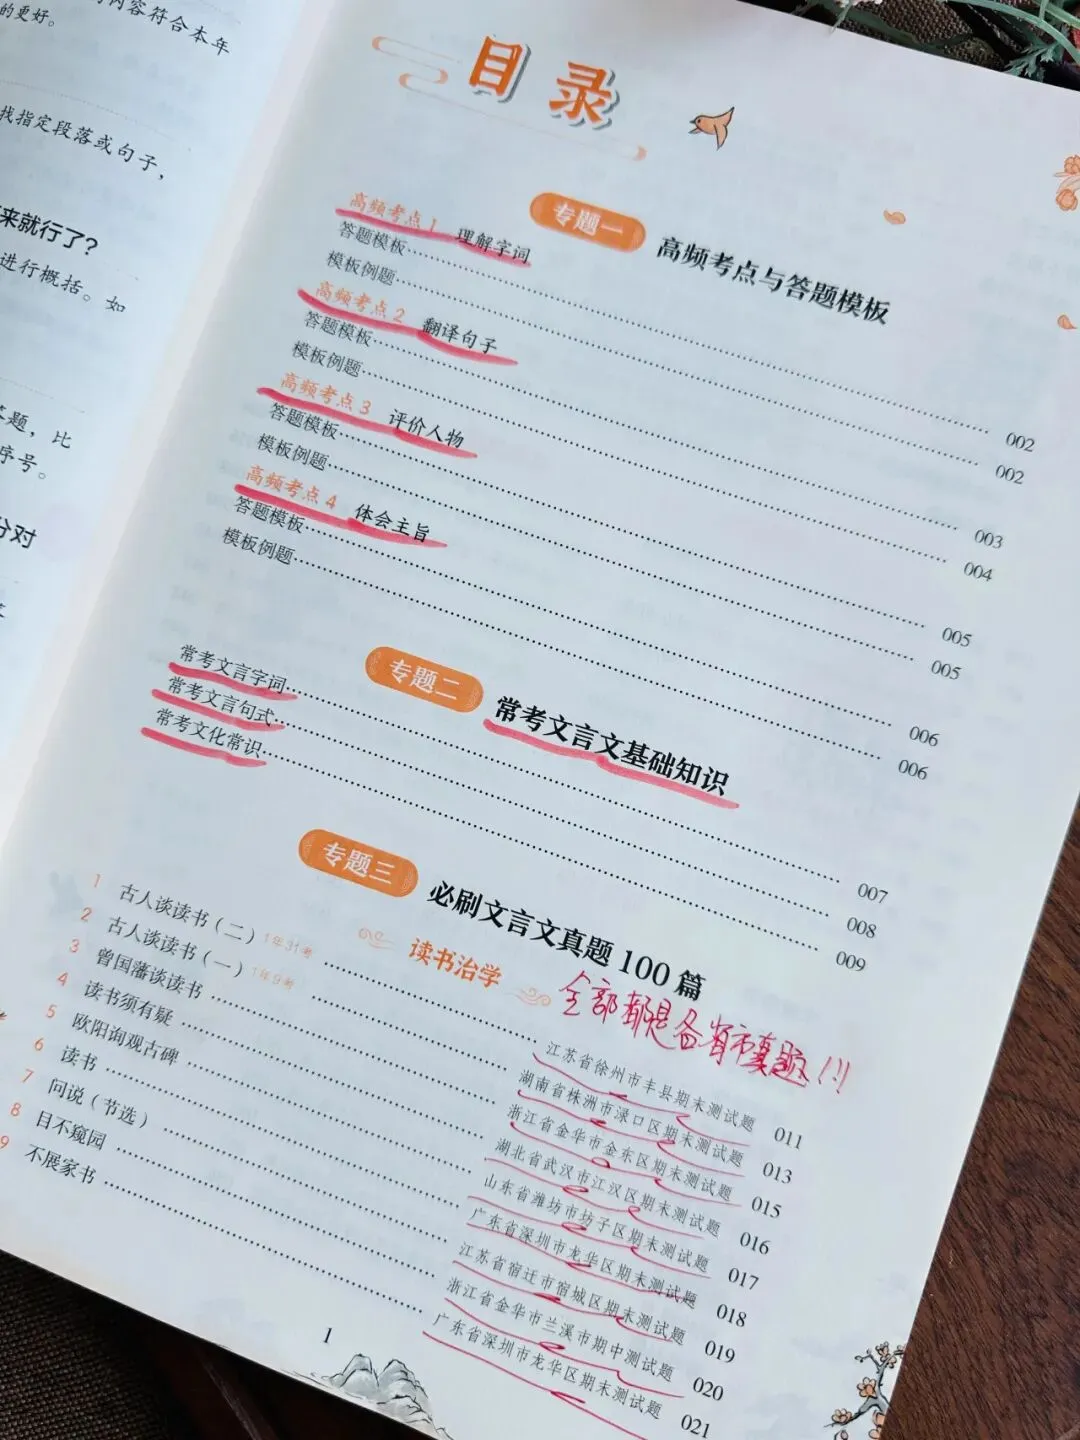 内容符合本年
的更好。
找指定段落或句子,
来就行了?
进行概括。如
答题,比
序号。
分对
目录
专题一 高频考点与答题模板
高频考点1 理解字词
答题模板 002
模板例题 002
高频考点2 翻译句子
答题模板 003
模板例题 004
高频考点3 评价人物
答题模板 005
模板例题 005
高频考点4 体会主旨
答题模板 006
模板例题 006
专题二 常考文言文基础知识
常考文言字词 007
常考文言句式 008
常考文化常识 009
专题三 必刷文言文真题100篇
读书治学
全部都是各省市真题!!!
1 古人谈读书(二) 1年31考 江苏省徐州市丰县期末测试题 011
2 古人谈读书(一) 1年9考 湖南省株洲市渌口区期末测试题 013
3 曾国藩谈读书 浙江省金华市金东区期末测试题 015
4 读书须有疑 湖北省武汉市江汉区期末测试题 016
5 欧阳询观古碑 山东省潍坊市坊子区期末测试题 017
6 读书 广东省深圳市龙华区期末测试题 018
7 问说(节选) 江苏省宿迁市宿城区期末测试题 019
8 目不窥园 浙江省金华市兰溪市期中测试题 020
9 不展家书 广东省深圳市龙华区期末测试题 021
1